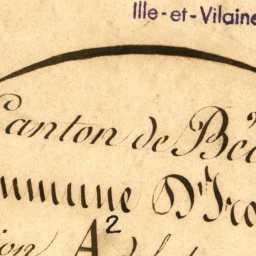 Ille-et-Vilaine
Canton de Béc
ommune D'Iro
ion A2